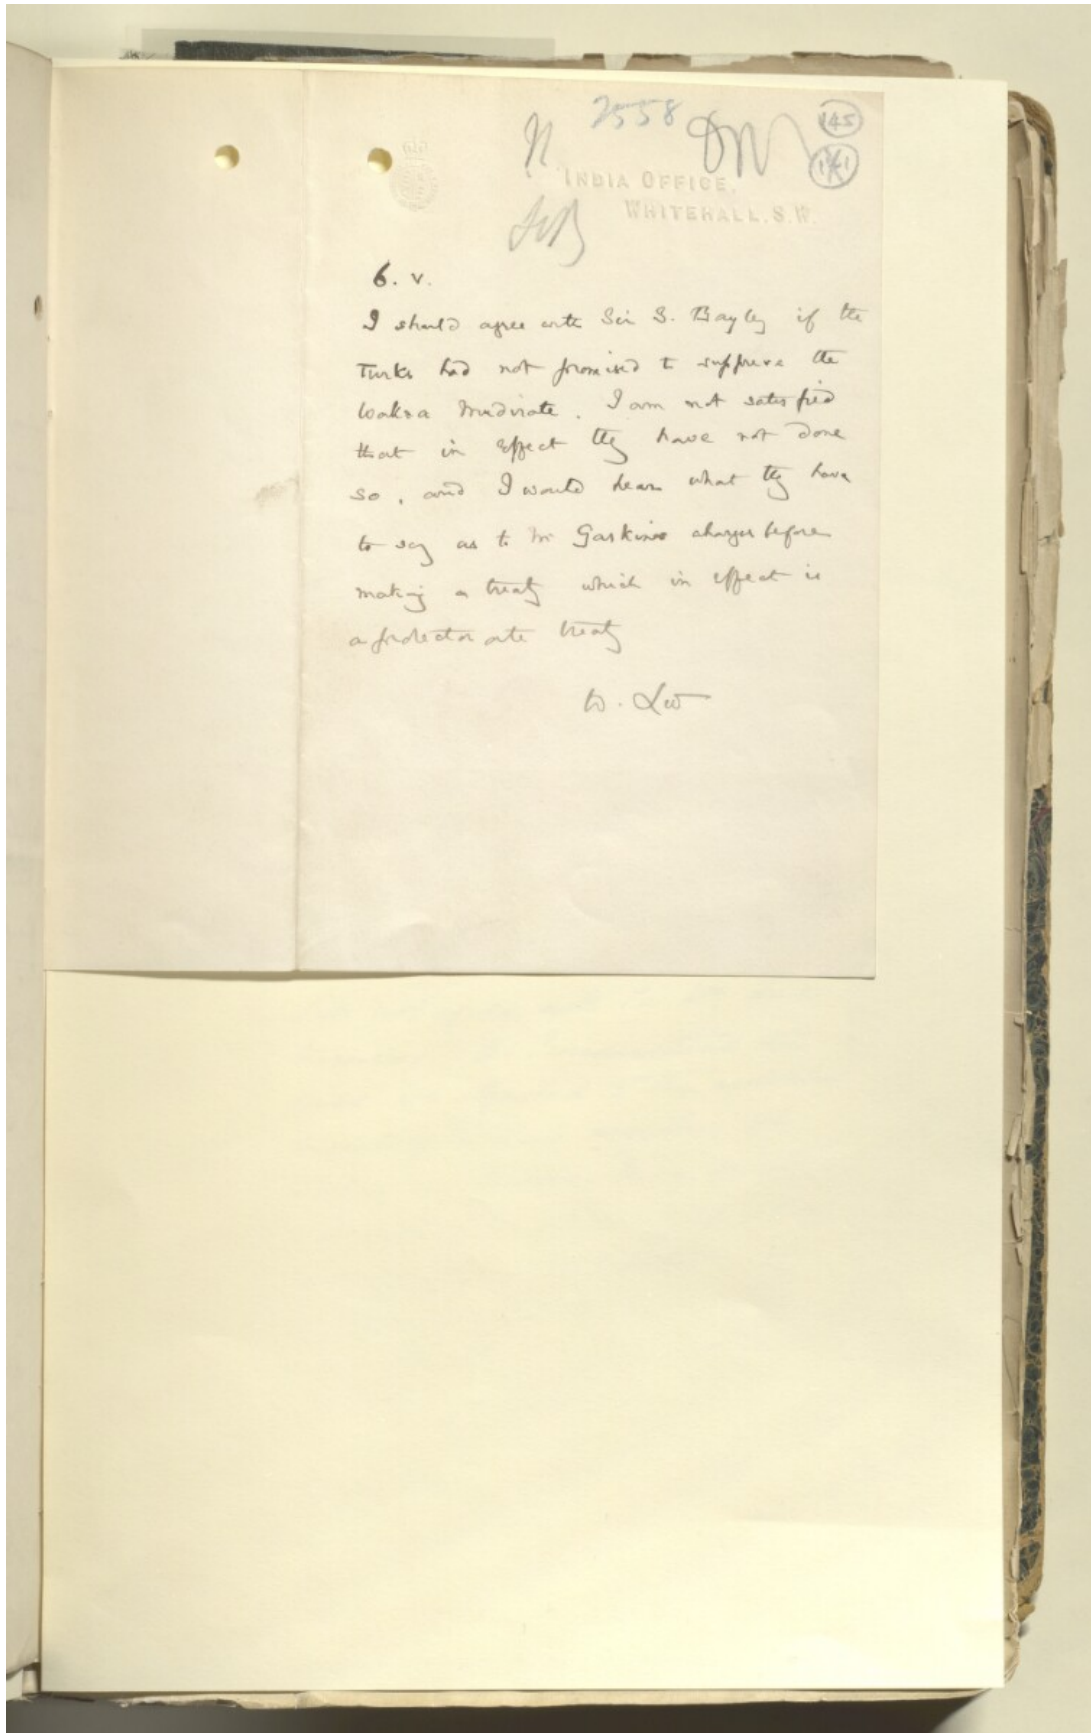 2558
145
INDIA OFFICE,
WHITEHALL. S.W.
6. v.
I should agree with Sir S. Bayley if the
Turks had not promised to suppress the
Wakra Mudirate. I am not satisfied
that in effect they have not done
so, and I would hear what they have
to say as to Mr Gaskins charges before
making a treaty which in effect is
a protectorate treaty
W. LW